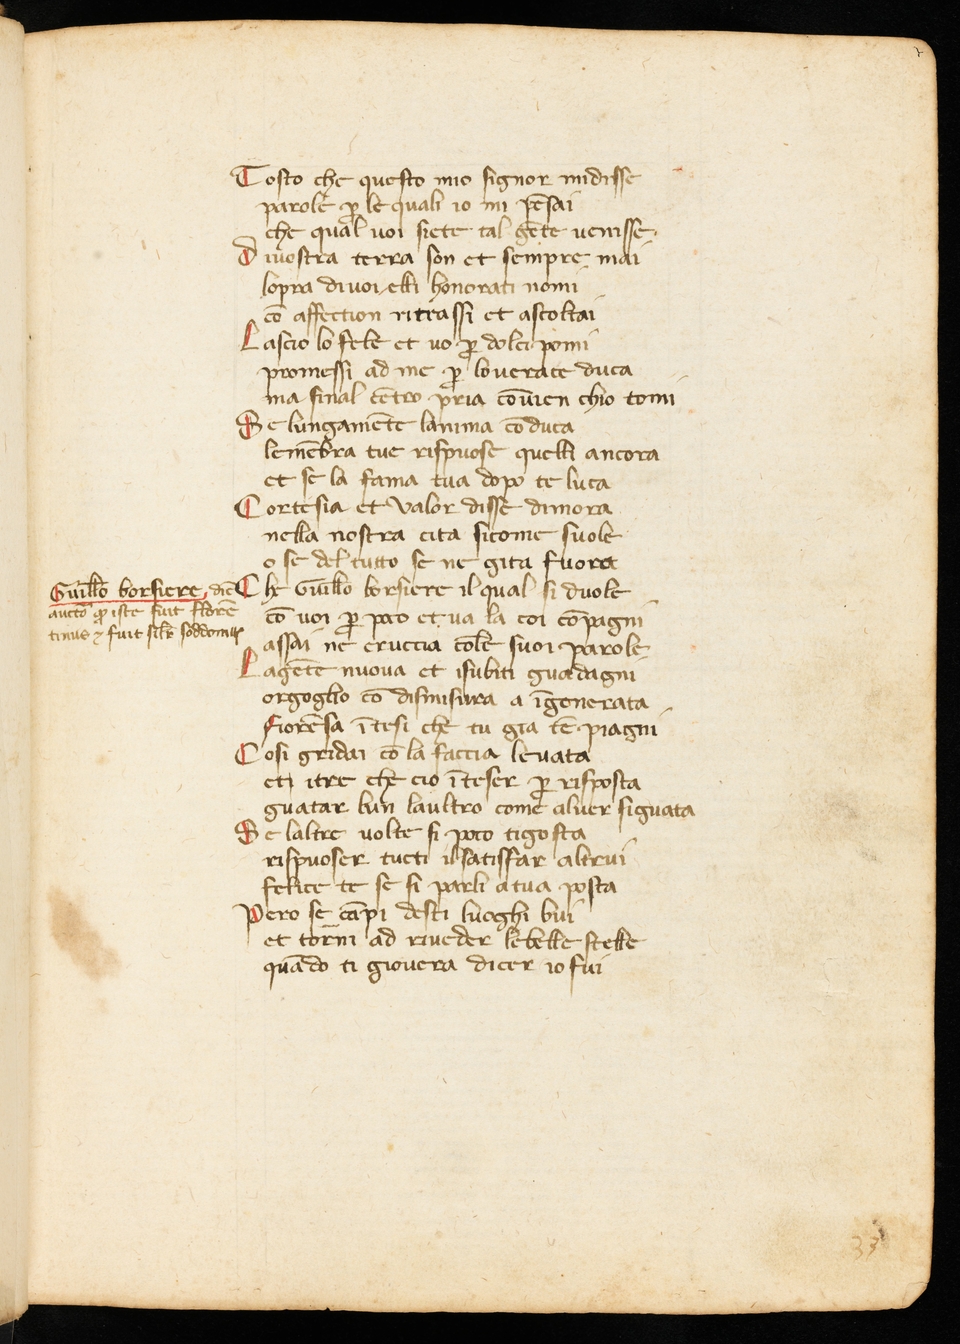 Tosto che questo mio signor midisse
parole ꝑ le quali io mi pēsai
che qual uoi siete tal gēte uenisse
Di uostra terra son et sempre mai
lopra di uoi elli honorati nomi
cō affection ritrassi et ascoltai
Lascio lo fele et uo ꝑ dolci pomi
promessi ad me ꝑ lo uerace duca
ma final cētro pria cōuien chio tomi
Se lungamēte lanima cōduca
le mēbra tue rispuose quelli ancora
et se la fama tua dopo te luca
Cortesia et valor disse dimora
nella nostra cita sicome suole
o se del tutto se ne gita fuora
Che Guill̄o borsiere il qual si duole
cō uoi ꝑ poco et ua la coi cōpagni
assai ne cruccia cole suoi parole
La gēte nuoua et isubiti guadagni
orgoglio cō dismisura a īgenerata
fiorēsa ī tesi che tu gia tē piagni
Cosi gridai cō la faccia leuata
et i tre che cio īteser ꝑ risposta
guatar lun laultro come aluer siguata
Se laltre uolte si poco ti gosta
rispuoser tucti il satisfar altrui
felice te se si parli a tua posta
Pero se cāpi desti luoghi bui
et torni ad riueder le belle stelle
quādo ti giouera dicer io fui
Guill̄o borsiere, dic̄
auctō ꝙ iste fuit florē
tinus ⁊ fuit sil̄r soddomit
33